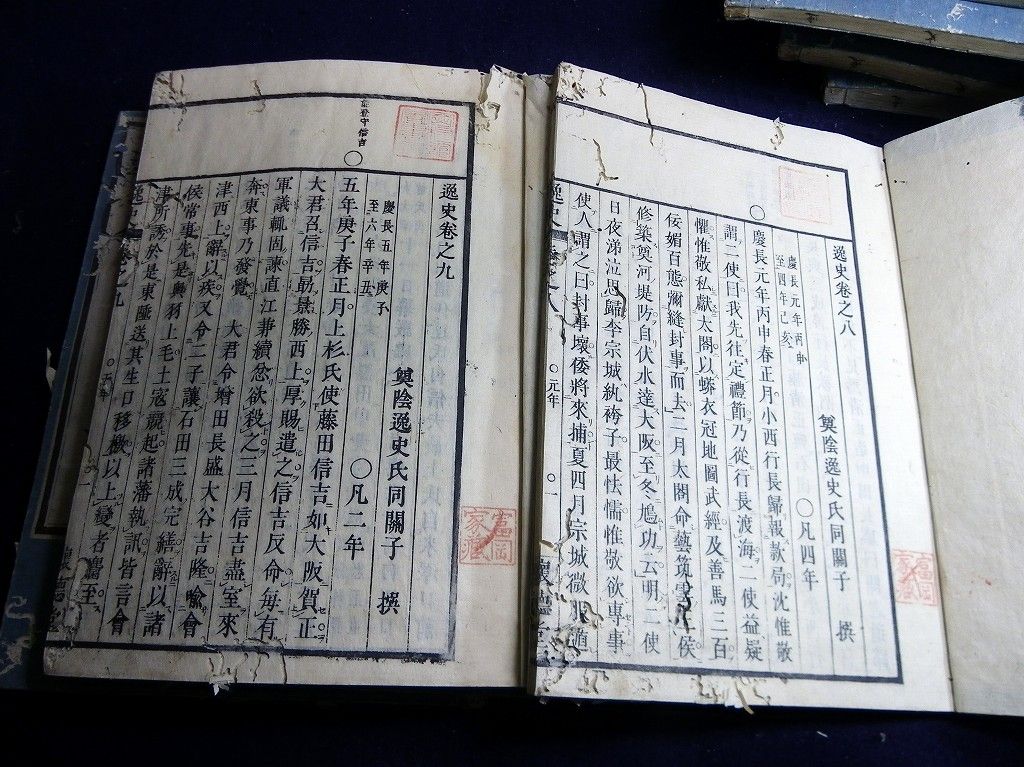 逸史卷之八
慶長元年丙申
至四年己亥
〇凡四年
奠陰逸史氏同關子 撰
慶長元年丙申春正月小西行長歸報欵局沈惟敬
謂二使曰我先往定禮節乃從行長渡海二使益疑
懼惟敬私獻太閤以蟒衣冠地圖武經及善馬三百
佞媚百態彌縫封事而去二月太閤命藝筑雲侯
修築奠河堤防自伏水達大阪至冬鳩功云明二使
日夜涕泣思歸李宗城紈袴子最怯懦惟敬欲專事
使人謂之曰封事壞倭將來捕夏四月宗城微服遁
逸史
〇元年
〇一
富岡家藏
逸史卷之九
慶長五年庚子
至六年辛丑
〇凡二年
奠陰逸史氏同關子 撰
五年庚子春正月上杉氏使藤田信吉如大阪賀正
大君召信吉勗景勝西上厚賜遣之信吉反命每有
軍議輒固諫直江兼續忿欲殺之三月信吉盡室來
奔東事乃發覺 大君令增田長盛大谷吉隆喻會
津西上辭以疾又令二子讓石田三成完繕辭以諸
侯常事先是奧羽上毛土寇競起諸藩執訊皆言會
津所誘於是東陲送其生口移檄以上變者驫至
能登守信吉
〇
逸史
〇五年
富岡家藏